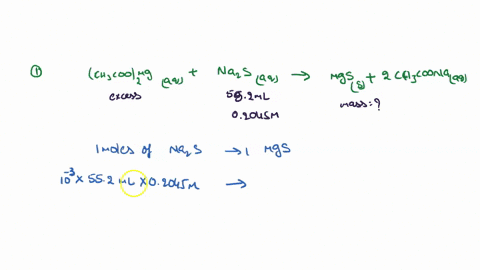 ① (CH3COO)2Mg (aq) + Na2S (aq) → MgS (s) + 2 CH3COONa (aq)
excess 55.2 mL mass=?
0.2045M
1 moles of Na2S → 1 MgS
10^-3 x 55.2 mL x 0.2045 M →